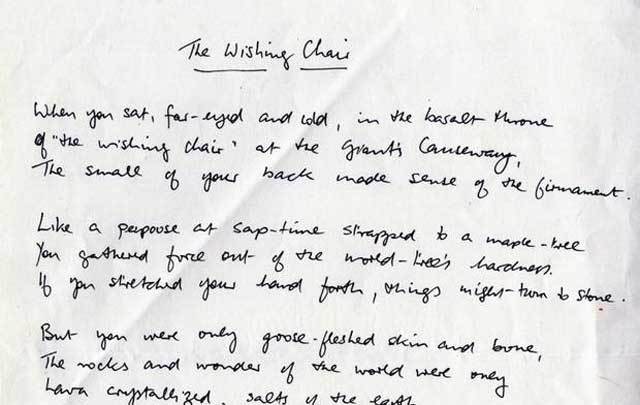 The Wishing Chair
When you sat, far-eyed and cold, in the basalt throne
of "the wishing chair" at the Giant's Causeway,
The small of your back made sense of the firmament.
Like a papoose at sap-time strapped to a maple-tree
You gathered force out of the world-tree's hardness.
If you stretched your hand forth, things might turn to stone.
But you were only goose-fleshed skin and bone,
The rocks and wonder of the world were only
Lava crystallized, salts of the earth